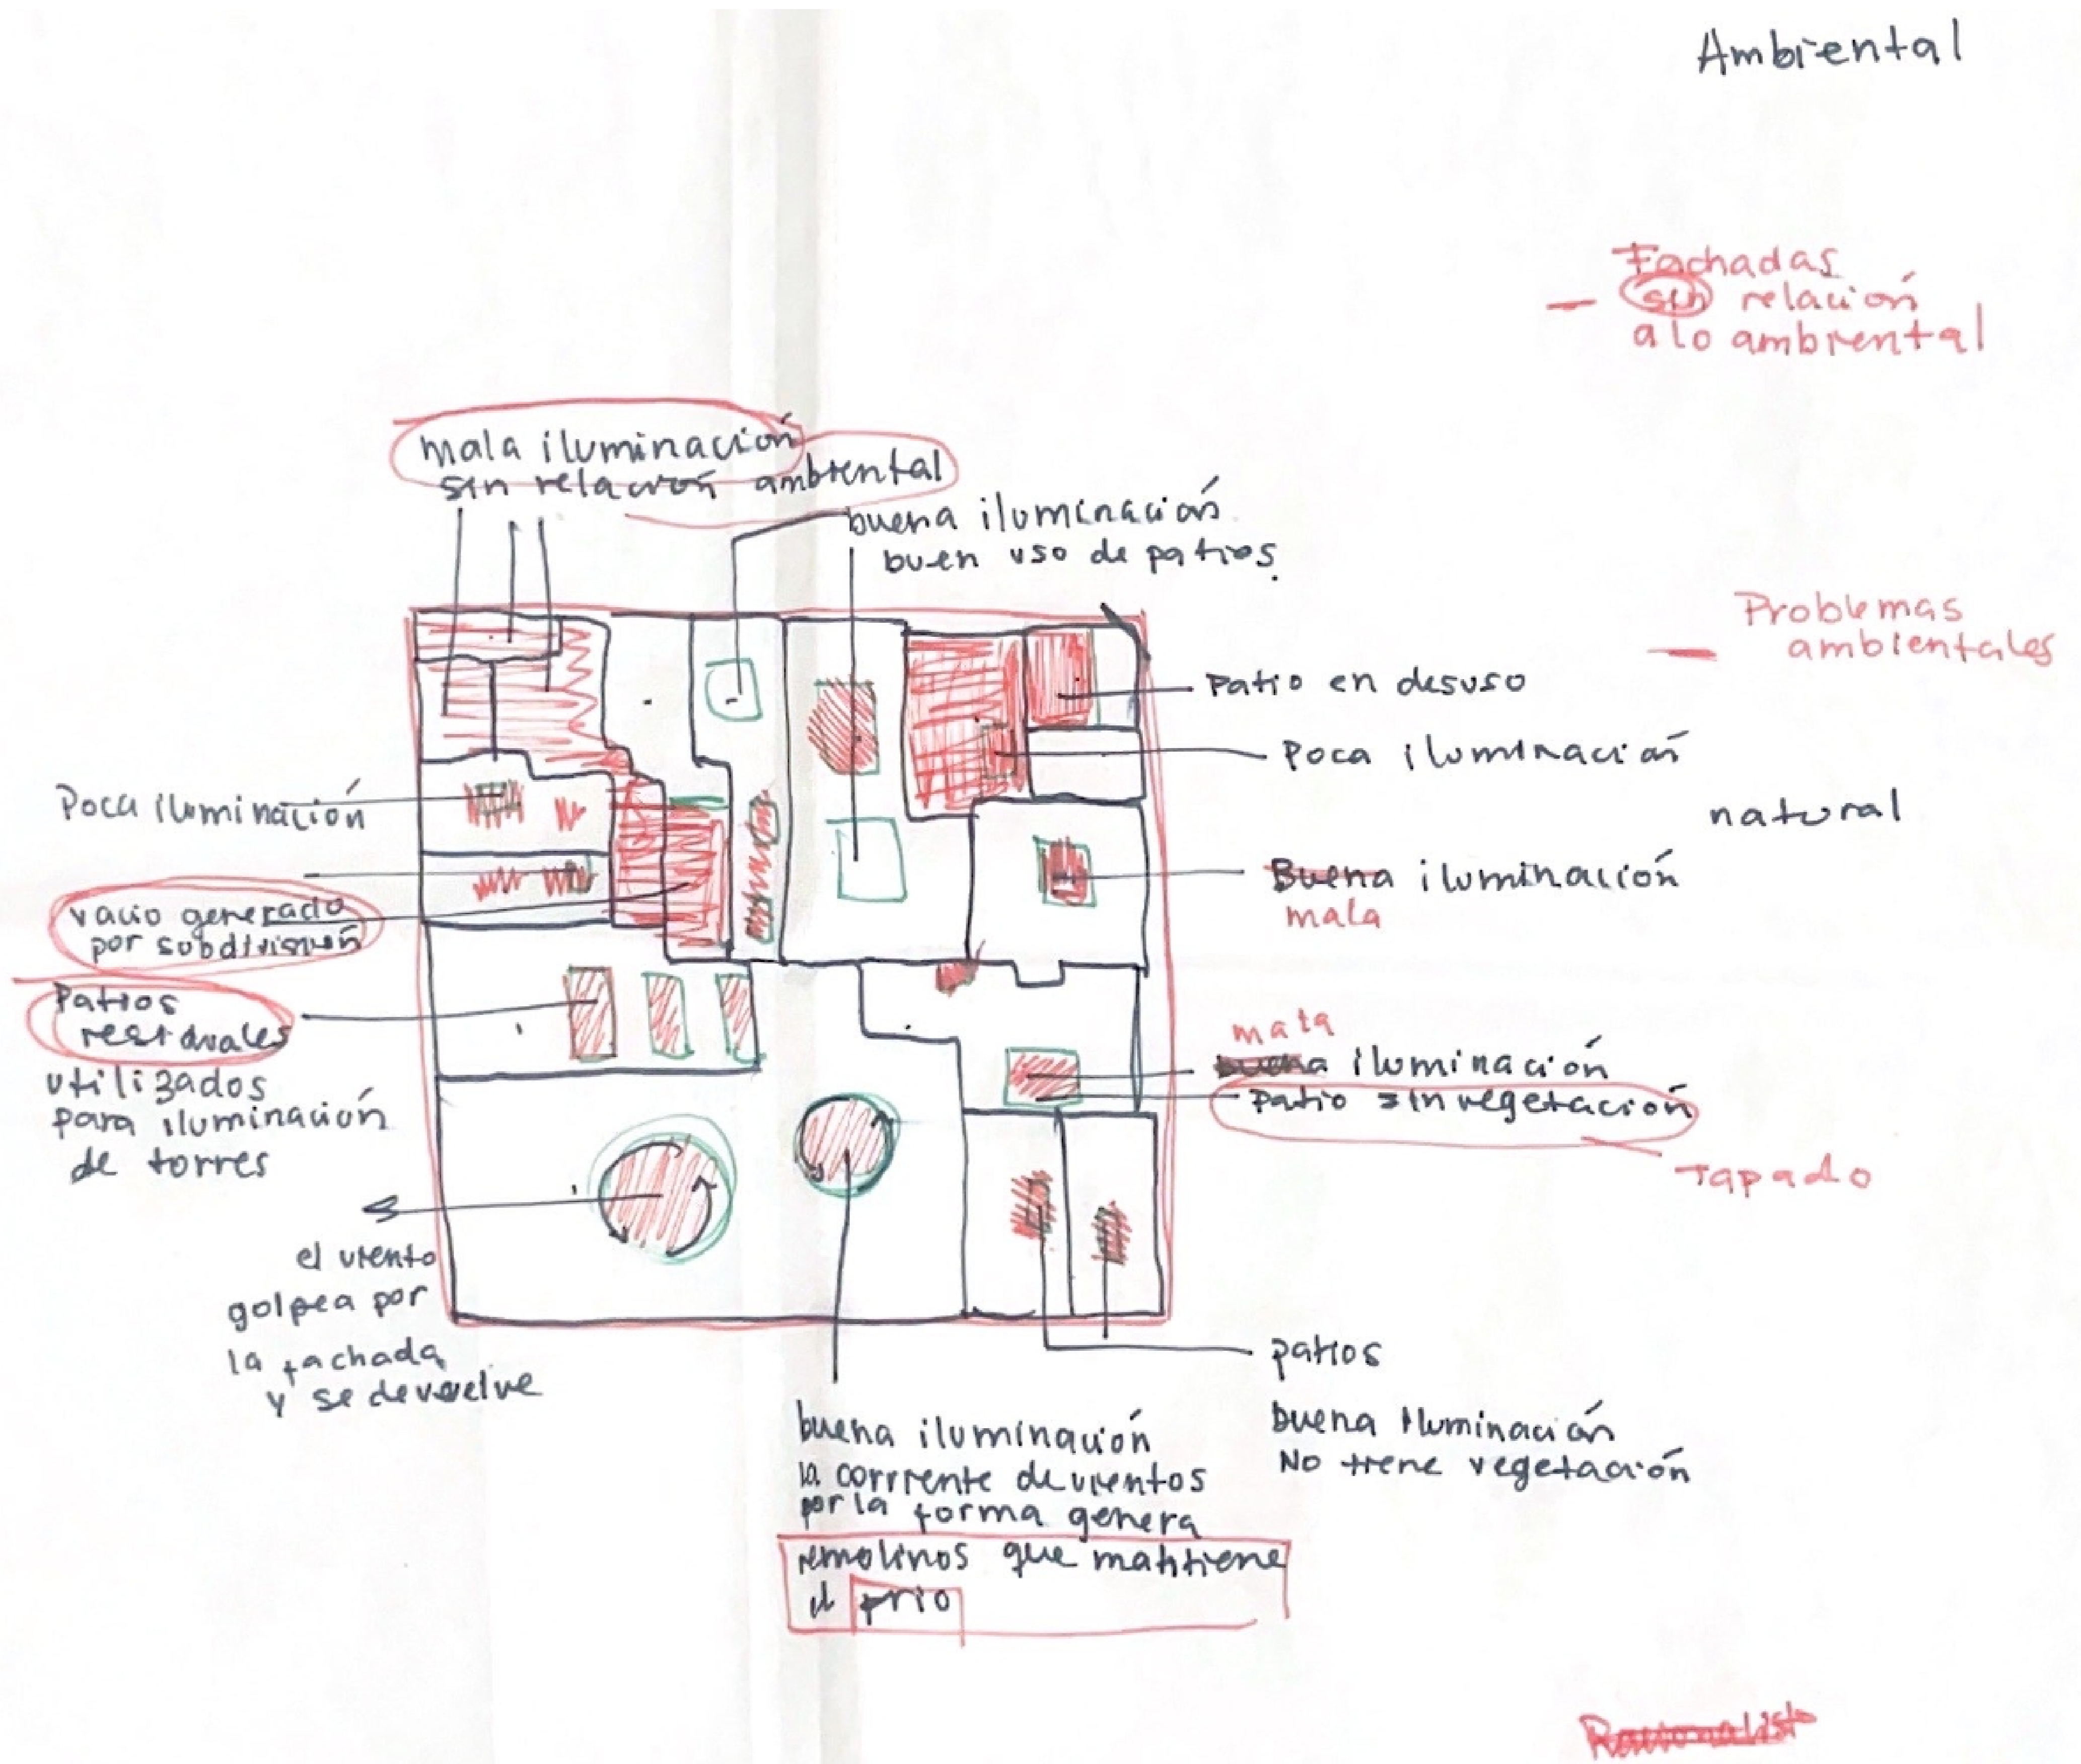 Ambiental
Fachadas
sin relación
a lo ambiental
mala iluminación
sin relación ambiental
buena iluminación
buen uso de patios.
Problemas
ambientales
Patio en desuso
Poca iluminación
natural
Poca iluminación
Buena iluminación
mala
vacio generado
por subdivisión
Patios
residuales
utilizados
para iluminación
de torres
mala
buena iluminación
Patio sin vegetación
Tapado
el viento
golpea por
la fachada
y se devuelve
patios
buena iluminación
No tiene vegetación
buena iluminación
la corrriente de vientos
por la forma genera
remolinos que mantiene
el frio